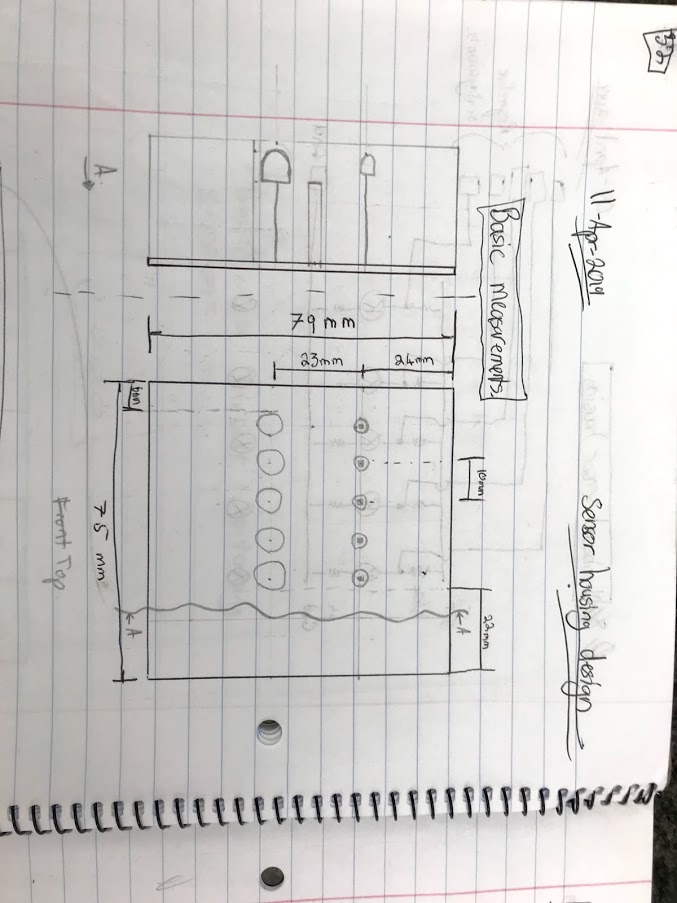 11-Apr-2019
Sensor housing design
Basic measurements.
24mm
23mm
79 mm
10mm
22mm
75 mm
A
← A
← A
Front Top